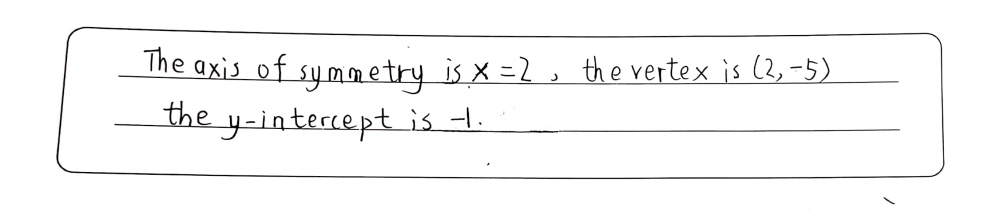 The axis of symmetry is x = 2 , the vertex is (2, -5)
the y-intercept is -1.